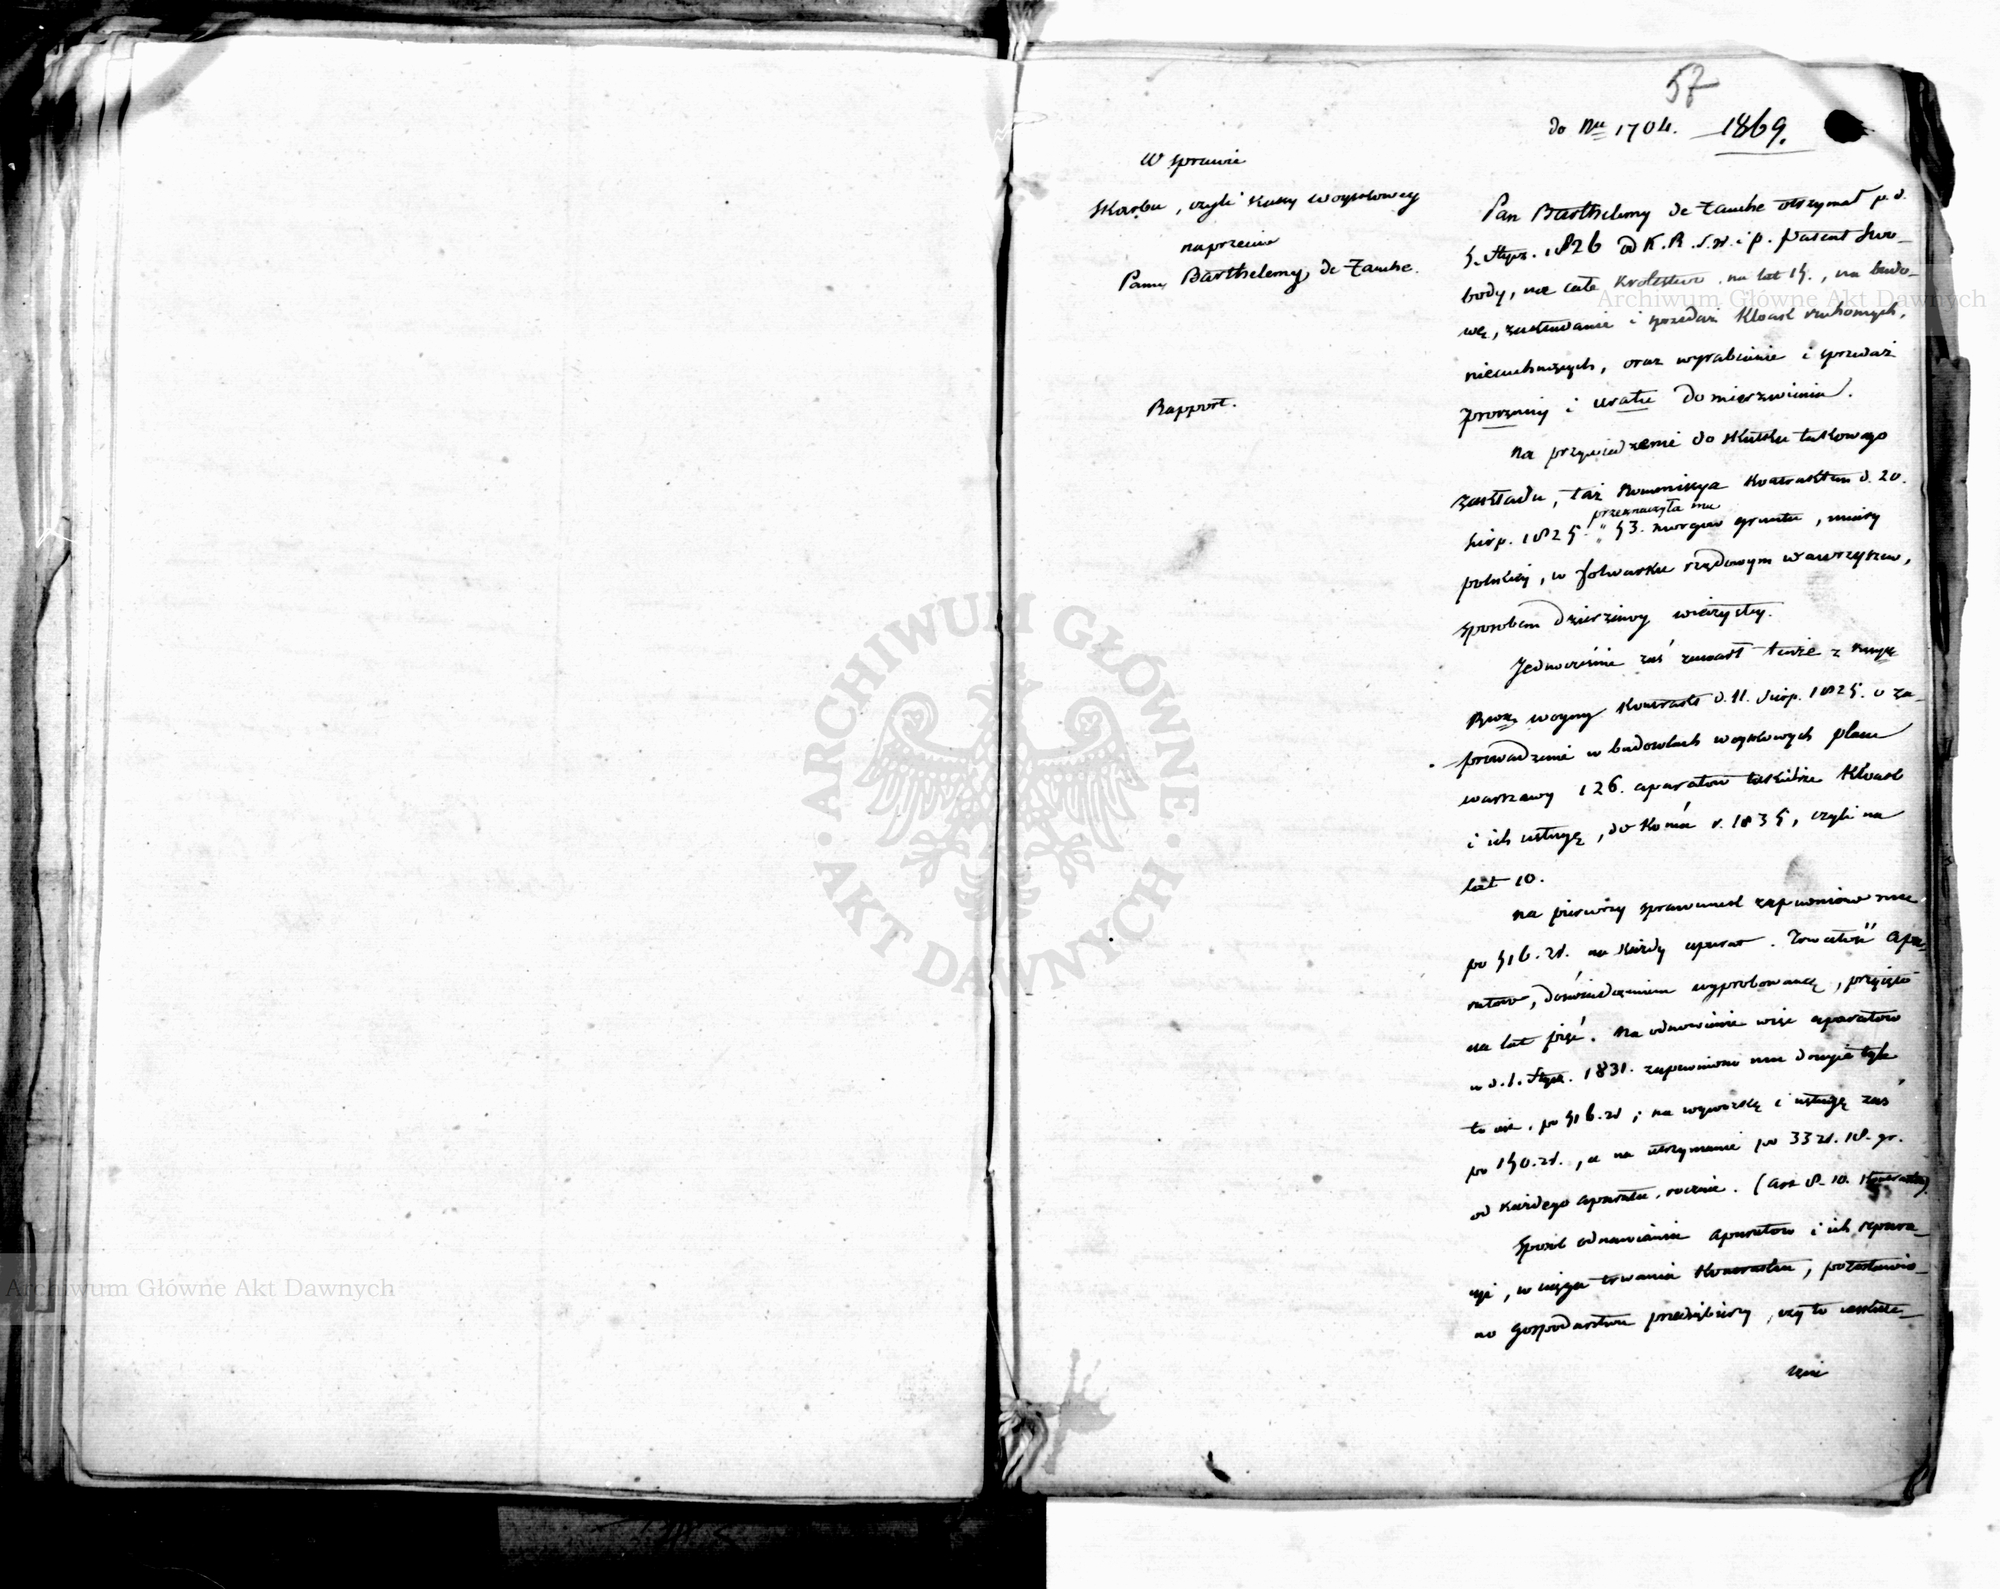 57
do Nru 1704. 1869.
W sprawie
Skarbu, czyli Kassy woyskowey
naprzeciw
Panu Barthelemy de Zauche.
Rapport.
Pan Barthelemy de Zauche otrzymał p. d.
5. Stycz. 1826 od K. R. S. W. i P. patent swo-
body, na całe Królestwo, na lat 15., na budo-
wę, zakładanie i sprzedaż Kloak ruchomych,
niecuchnących, oraz wyrabianie i sprzedaż
i uratu do mierzwienia.
Na przywiedzenie do skutku takowego
zakładu, taż Kommissya Kontraktem d. 20.
przeznaczyła mu
Sierp. 1825. 53. morgów gruntu, miary
polskiey, w folwarku rządowym Wawrzyszew,
sposobem dzierżawy wieczystey.
Jednocześnie zaś zawarł tenże z Kmyą
Rząd. woyny Kontrakt d. 11. Sierp. 1825. o za-
prowadzenie w budowlach woyskowych placu
Warszawy 126. aparatów takichże Kloak
i ich usługę, do końca r. 1835, czyli na
lat 10.
Na pierwszy sprawunek zapewniono mu
po 516. zł. na każdy aparat. Trwałość apa-
ratów, doświadczeniem wyprobowaną, przyjęto
na lat pięć. Na odnowienie więc aparatów
w d. 1. Stycz. 1831. zapewniono mu drugie tyle
to jest po 516. zł; na wywózkę i usługę zaś
po 150. zł., a na utrzymanie po 33 zł. 18. gr.
od każdego aparatu, rocznie. (Art 8-10. Kontraktu).
Sposób odnawiania aparatów i ich repara-
cyi, w ciągu trwania Kontraktu, pozostawio-
no gospodarstwu przedsiębiercy, czy to
Archiwum Główne Akt Dawnych
ARCHIWUM GŁÓWNE
AKT DAWNYCH
Archiwum Główne Akt Dawnych